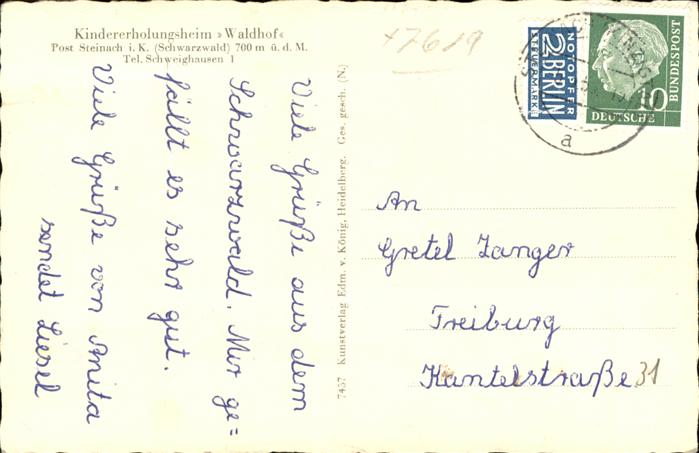 Kindererholungsheim »Waldhof«
Post Steinach i. K. (Schwarzwald) 700 m ü. d. M.
Tel. Schweighausen 1
Viele Grüße aus dem
Schwarzwald. Mir ge=
fällt es sehr gut.
Viele Grüße von Anita
sendet Liesel
7457 Kunstverlag Edm. v. König, Heidelberg. Ges. gesch. (N.)
+7619
NOTOPFER
2 BERLIN
STEUERMARKE
10
DEUTSCHE
BUNDESPOST
a
An
Gretel Zanger
Freiburg
Kantelstraße 31